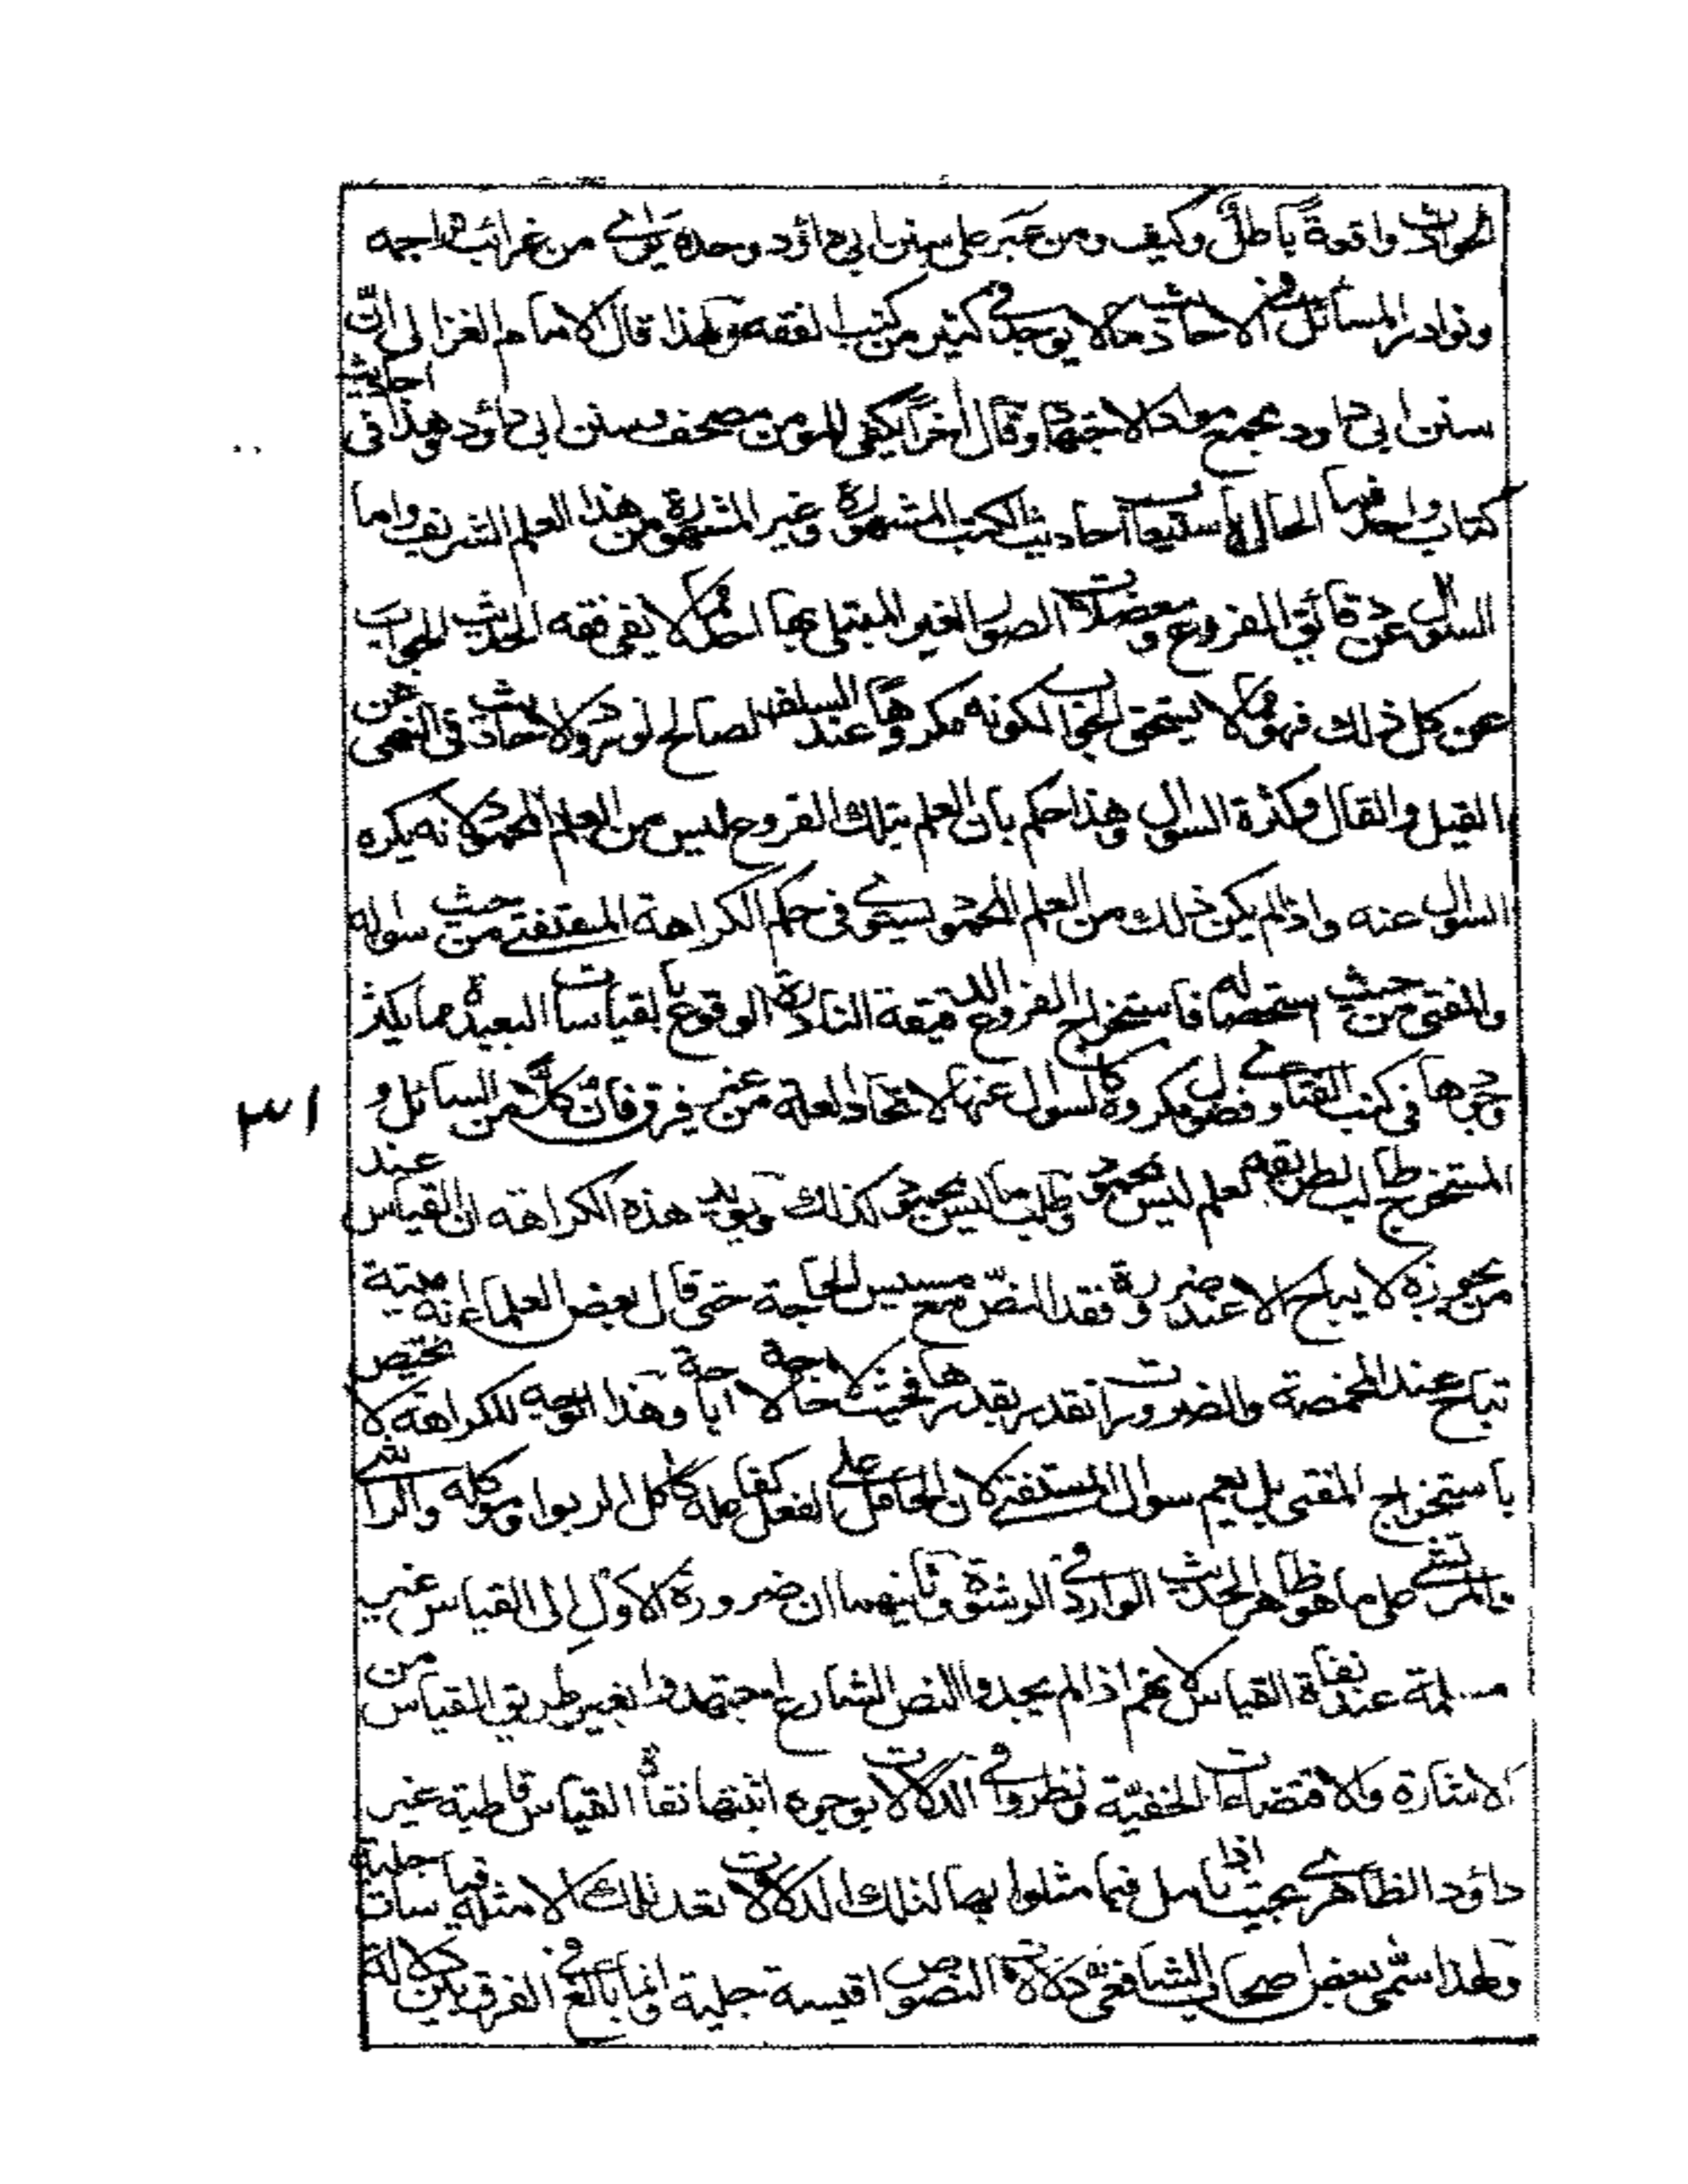 الحوادث واقعة باطل وكيف ومن عبر على سنن ابي داؤد وحده يرى من غرائب تراجمه
ونوادر المسائل في الاحاديث مما لا يوجد في كثير من كتب الفقه ولهذا قال الامام الغزالي ان
سنن ابي داود يجمع مواد الاجتهاد وقال اخرا يكفي للمومن مصحف وسنن ابي داؤد وهذا في احاديث
كتاب واحد فما الحال لاستيعاب احاديث الكتب المشهورة وغير المشهورة من هذا العلم الشريف واما
السوال عن دقائق الفروع ومعضلات الصور الغير المبتلى بها احد مما لا يفي فقه الحديث الجواب
عن كل ذلك فهو مما لا يستحق الجواب لكونه مكروها عند السلف الصالح لورود الاحاديث في النهي عن
القيل والقال وكثرة السوال وهذا حكم بان العلم بتلك الفروع ليس من العلم المحمود لانه يكره
السوال عنه واذا لم يكن ذلك من العلم المحمود يستوي في حكم الكراهة المستفتي من حيث سواله
والمفتي من حيث استحصاله فاستخراج الفروع الدقيقة النادرة الوقوع بالقياسات البعيدة مما يكثر
وجودها في كتب الفتاوى فضول مكروه كالسوال عنها لاتحاد العلة من غير فرق فان كلا من السائل و
المستخرج طالب لطريقه لعلم ليس بمحمود وطلب ما ليس بمحمود كذلك ويؤيد هذه الكراهة ان القياس عند
من يجوزه لا يباح الا عند ضرورة فقد النص مع مسيس الحاجة حتى قال بعض العلماء انه ميتة
تباح عند المخمصة والضرورات تقدر بقدرها فحيث لا حاجة لا اباحة وهذا الوجه للكراهة لا يختص
باستخراج المفتي بل يعم سوال المستفتي لان الحامل على الفعل كفاعله كاكل الربوا وموكله والراشي
والمرتشي على ما هو ظاهر الحديث الوارد في الرشوة وثانيهما ان ضرورة الاول الى القياس غير
مسلمة عند نفاة القياس لانهم اذا لم يجدوا النص الشارع اجتهدوا بغير طريق القياس من
الاشارة والاقتضاءات الخفية ونظروا في الدلالات بوجوه اثبتها نفاة القياس قاطبة غير
داؤد الظاهري بحيث اذا تامل فيما مثلوا بها لتلك الدلالات تعد تلك الامثلة قياسات جلية
ولهذا سمى بعض اصحاب الشافعي دلالات النصوص اقيسة جلية وانما بالغ في الفرق بين دلالة
٣١